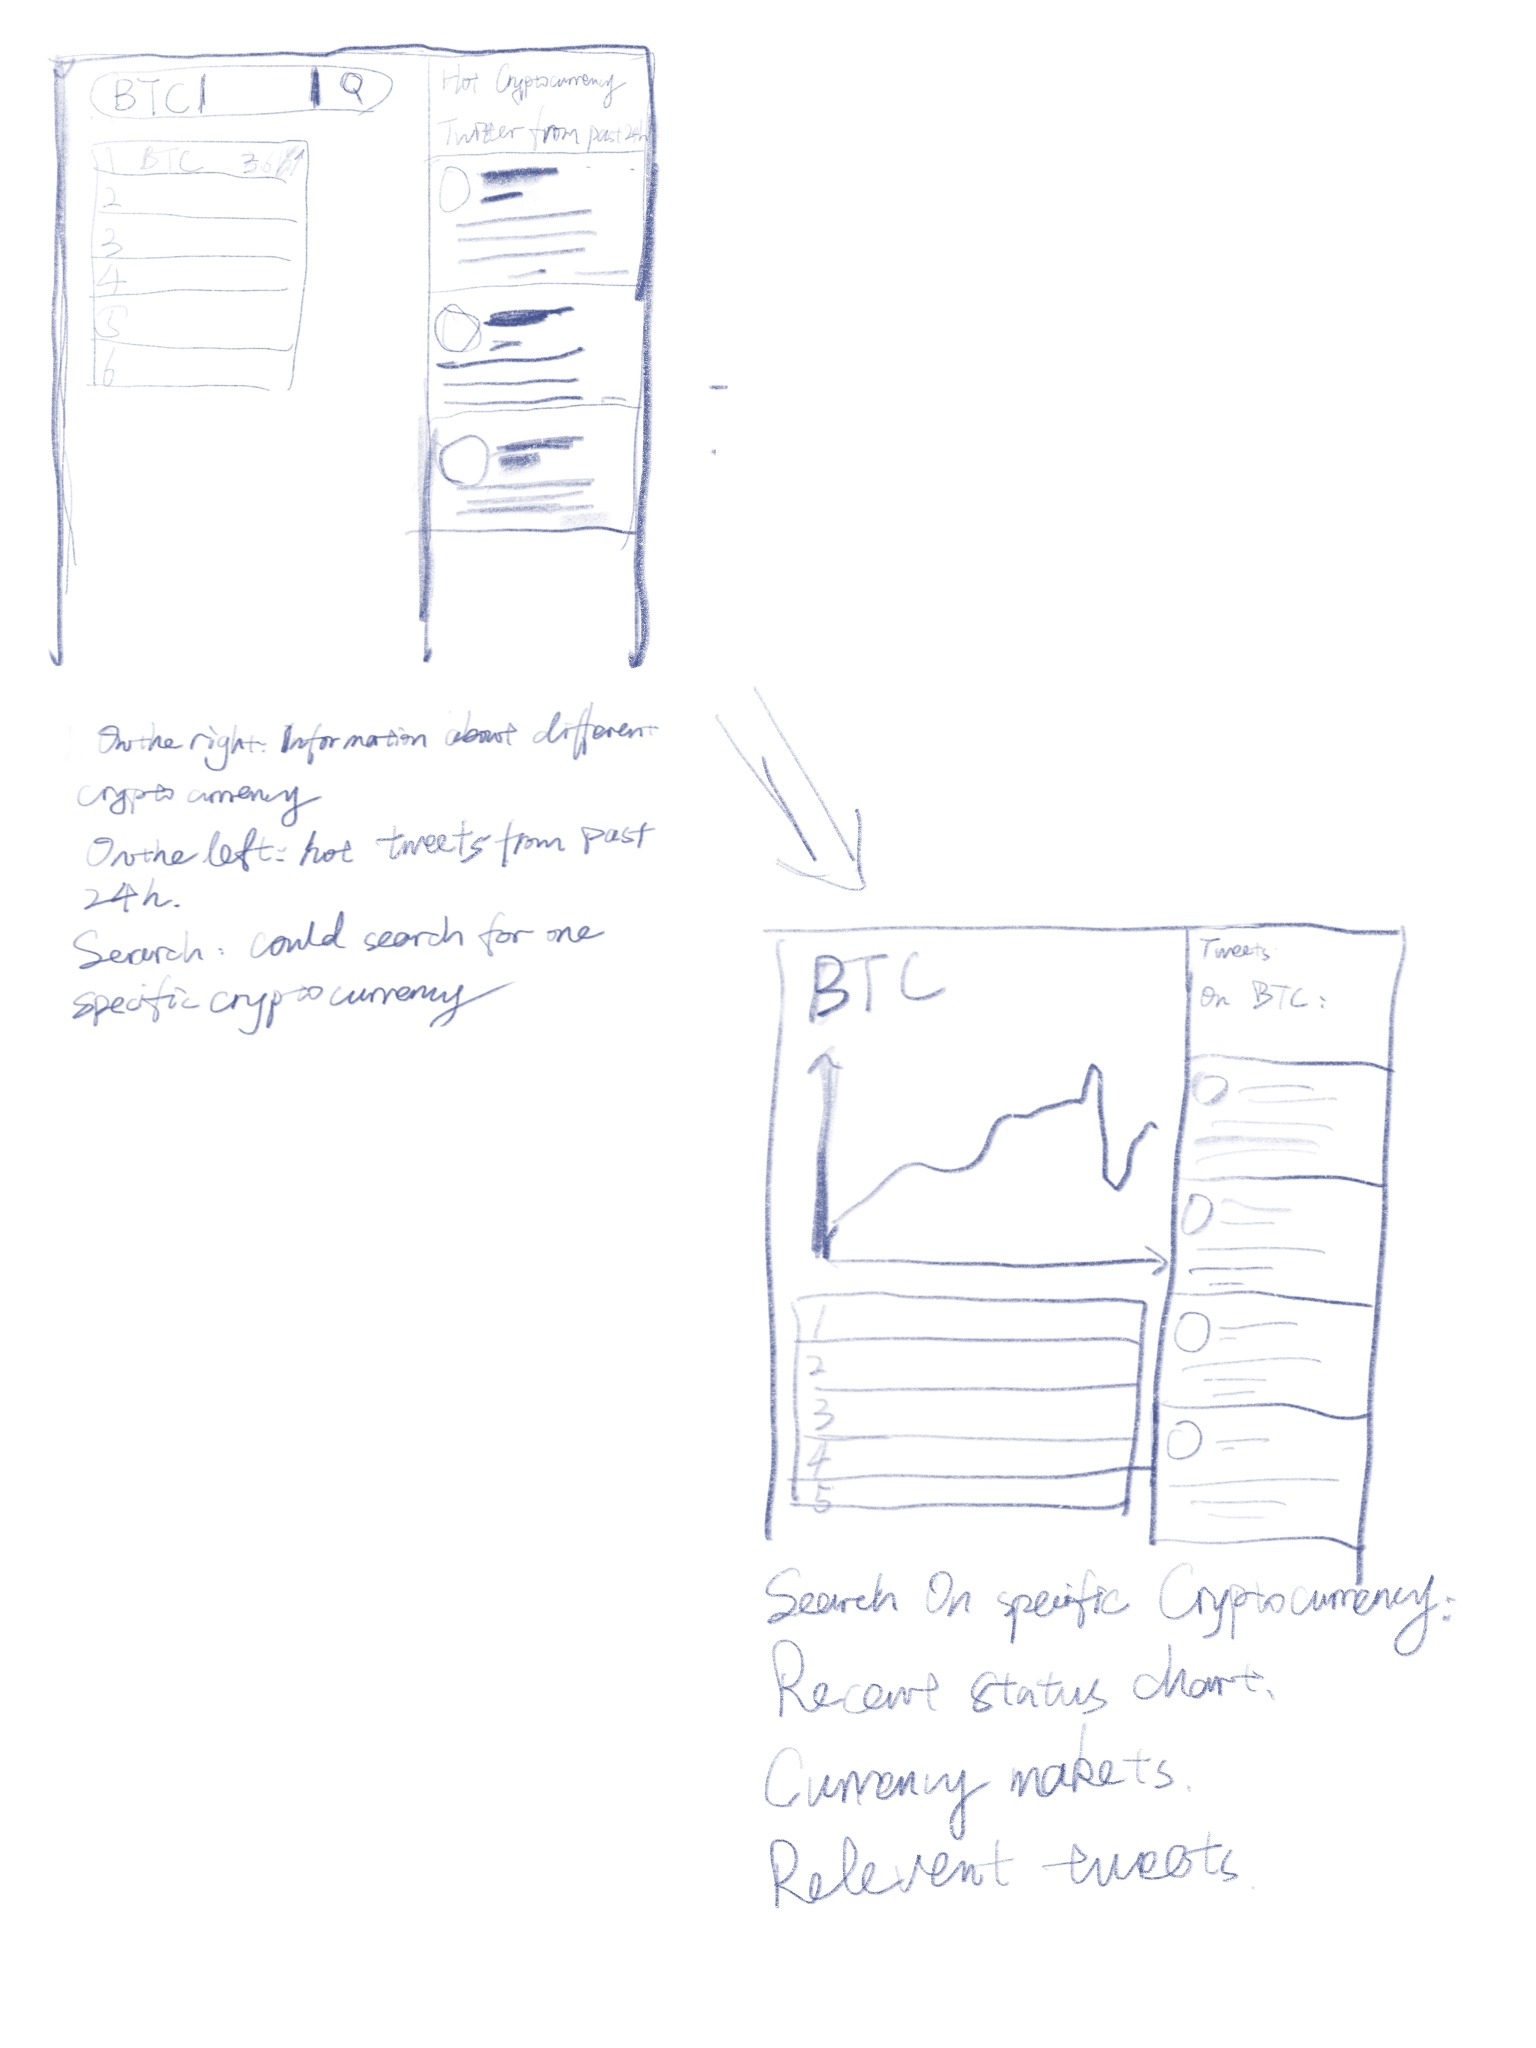 BTC
Hot Cryptocurrency
Twitter from past 24h
1 BTC
2
3
4
5
6
On the right: Information about different
crypto currency
On the left: hot tweets from past
24h.
Search: could search for one
specific cryptocurrency
BTC
Tweets
On BTC:
1
2
3
4
5
Search On specific Cryptocurrency:
Recent status chart.
Currency markets.
Relevent tweets.